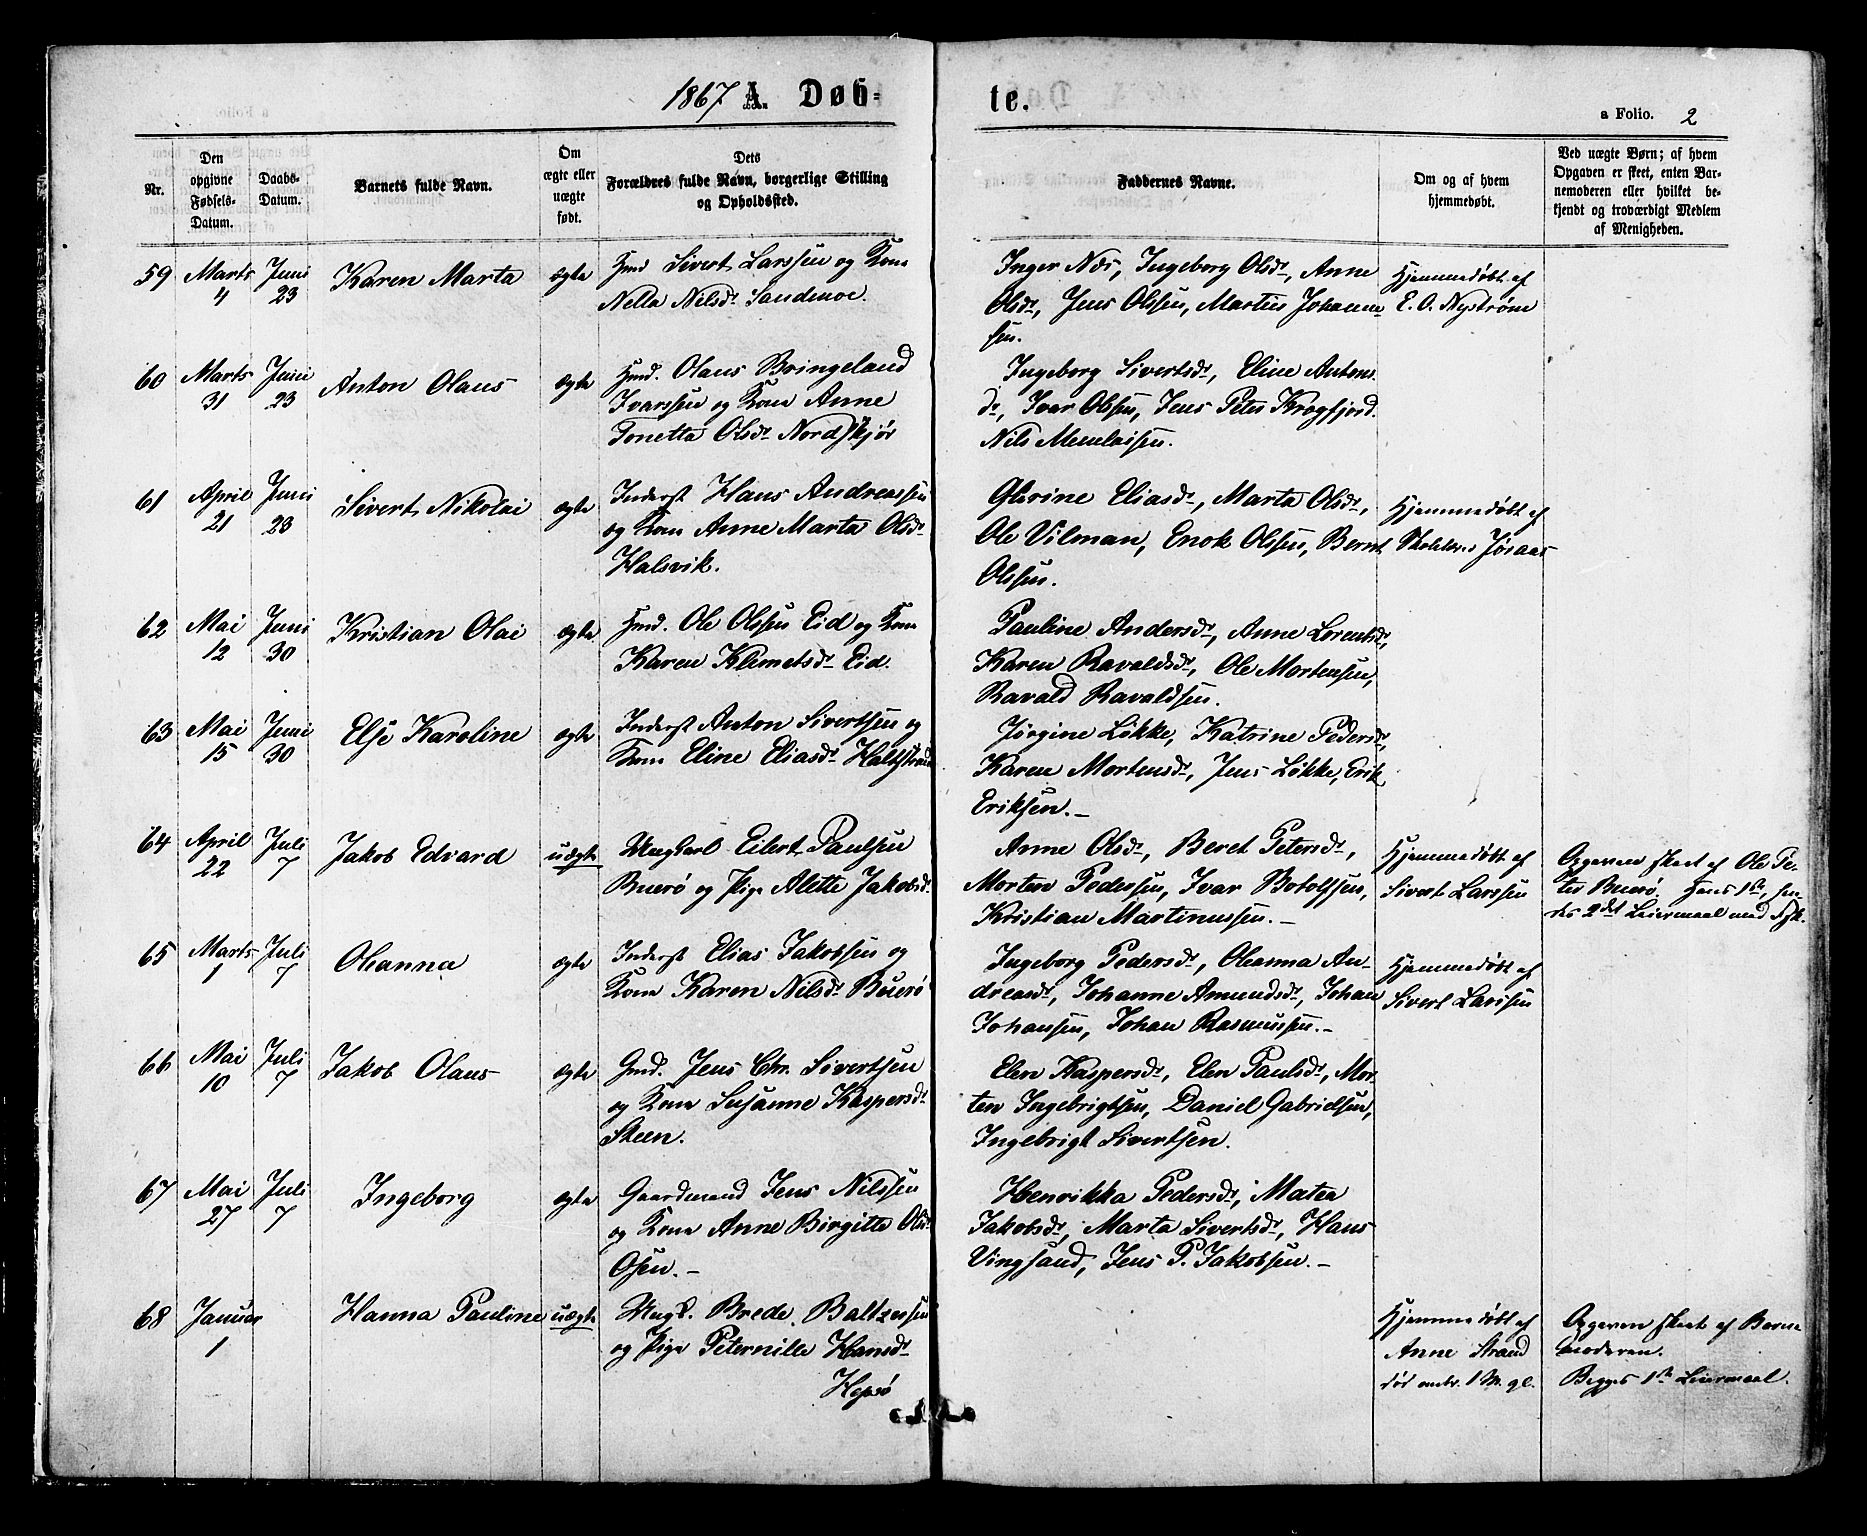 1867 A. Døb-
te.
a Folio. 2
Nr.
Den opgivne Fødsels-Datum.
Daabs-Datum.
Barnets fulde Navn.
Om ægte eller uægte født.
Dets Forældres fulde Navn, borgerlige Stilling og Opholdssted.
Faddernes Navne.
Om og af hvem hjemmedøbt.
Ved uægte Børn; af hvem Opgaven er skeet, enten Bar-nemoderen eller hvilket be-kjendt og troværdigt Medlem af Menigheden.
59 Marts 4 Juni 23 Karen Marta ægte Hmd Sivert Larssen og Kone
Nella Nilsdr Sandmoe.
Inger Nøs, Ingeborg Olsdr, Anne
Olsdr, Jens Olssen, Martin Johann-
sen.
Hjemmedøbt af
E. O. Nystrøm
60 Marts 31 Juni 23 Anton Olaus ægte Hmd. Olaus Bringeland
Ivarssen og Kone Anne
Tonetta Olsdr Nordskjør
Ingeborg Sivertsdr, Eline Antons
dr, Ivar Olssen, Jens Peter Krogfjord.
Nils Menulaisen.
61 April 21 Juni 23 Sivert Nikolai ægte Inderst Hans Andreassen
og Kone Anne Marta Olsdr
Halsvik.
Glorine Eliasdr, Marta Olsdr,
Ole Vilman, Enok Olssen, Bernt
Olssen.
Hjemmedøbt af
Jøraas
62 Mai 12 Juni 30 Kristian Olai ægte Hmd. Ole Olssen Eid og Kone
Karen Klemetsdr Eid.
Pauline Andersdr, Anne Lorentsdr,
Karen Ravaldsdr, Ole Mortensen,
Ravald Ravaldsen.
63 Mai 15 Juni 30 Else Karoline ægte Inderst Anton Sivertsen og
Kone Eline Eliasdr
Jørgine Løkke, Katrine Pedersdr,
Karen Mortensdr, Jens Løkke, Erik
Eriksen.-
64 April 22 Juli 7 Jakob Edvard uægte Ungkarl Eilert Paulsen
Buerø og Pige Alette Jakobsdr.
Anne Olsdr, Beret Petersdr,
Morten Pedersen, Ivar Botolfsen,
Kristian Martinussen.-
Hjemmedøbt af
Sivert Larssen
Opgaven skeet af Ole Pe-
ter Buerø. Hans 1ste, hen-
des 2det Leiermaal med
65 Marts 1 Juli 7 Oleanna ægte Inderst Elias Jakobsen og
Kone Karen Nilsdr Buerø
Ingeborg Pedersdr, Oleanna An-
dreasdr, Johanne Amundsdr, Johan
Johansen, Johan Rasmussen.-
Hjemmedøbt af
Sivert Larssen
66 Mai 10 Juli 7 Jakob Olaus ægte Gmd. Jens Chr. Sivertsen
og Kone Susanne Kaspersdr
Steen.
Elen Kaspersdr, Elen Paulsdr, Mor-
ten Ingebrigtsen, Daniel Gabrielsen,
Ingebrigt Sivertsen.
67 Mai 27 Juli 7 Ingeborg ægte Gaardmand Jens Nilssen
og Kone Anne Birgitte Olsdr
Osen.-
Henrikka Pedersdr, Matea
Jakobsdr, Marta Sivertsdr, Hans
Vingsand, Jens P. Jakobsen.-
68 Januar 1 Hanna Pauline uægte Ungk. Brede Baltzersen
og Pige Peternille Hansdr
Hepsø
Hjemmedøbt af
Anne Strand
død omtr. 1 M. gl.
Opgaven skeet af Barne
moderen.
Begges 1ste Leiermaal.